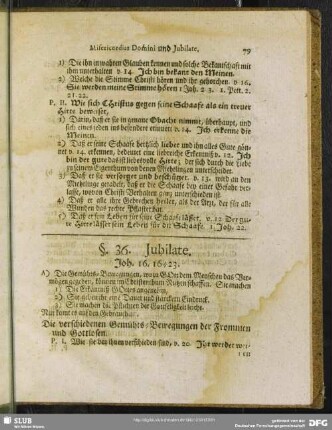 Misericordias Domini und Jubilate. 79
1) Die ihn in wahren Glauben kennen und solche Bekantschaft mit
ihm unterhalten v. 14. Ich bin bekant den Meinen.
2) Welche die Stimme Christi hören und ihr gehorchen. v. 16.
Sie werden meine Stimme hören 1 Joh. 2 3. 1. Petr. 2.
21 22.
P. II. Wie sich Christus gegen seine Schaafe als ein treuer
Hirte beweiset,
1) Darin, daß er sie in genaue Obacht nimmt, überhaupt, und
sich eines jeden ins besondere erinnert v. 14. Ich erkenne die
Meinen.
2) Daß er seine Schaafe hertlich liebet und ihn alles Gute gönnet
v. 14. erkennen, bedeutet eine liebreiche Erkenntniß v. 12. Ich
bin der gute das ist liebevolle Hirte; der sich durch die Liebe
zu seinem Eigenthum von denen Methlingen unterscheidet.
3) Daß er sie versorget und beschützet. v. 13. wird an den
Methlinge getadelt, daß er die Schaafe bey einer Gefahr verlasse,
wovon Christi Verhalten ganz unterschieden ist.
4) Daß er alle ihre Gebrechen heilet, als der Arzt, der für alle
Wunden das rechte Pflaster hat.
5) Daß er sein Leben für seine Schaafe lässet. v. 12 Der gute
Hirte lässet sein Leben für die Schaafe. 1 Joh. 22.
§. 36. Jubilate.
Joh. 16, 16-23.
A) Die Gemüths-Bewegungen, wozu GOtt dem Menschen das Vermögen
gegeben, können im Christenthum Nutzen schaffen. Sie machen
1) Die Erkäntniß GOttes angenehm,
2) Sie geben ihr eine Dauer und starcken Eindruck.
3) Sie machen die Pflichten der Gottseligkeit leicht.
Nun komt es auf den Gebrauch an.
Die verschiedenen Gemüths-Bewegungen der Frommen
und Gottlosen.
P. I. Wie sie bey ihnen verschieden sind, v. 20. Ihr werdet weinen
SLUB
Wir führen Wissen.
gefördert von der
Deutschen Forschungsgemeinschaft
DFG